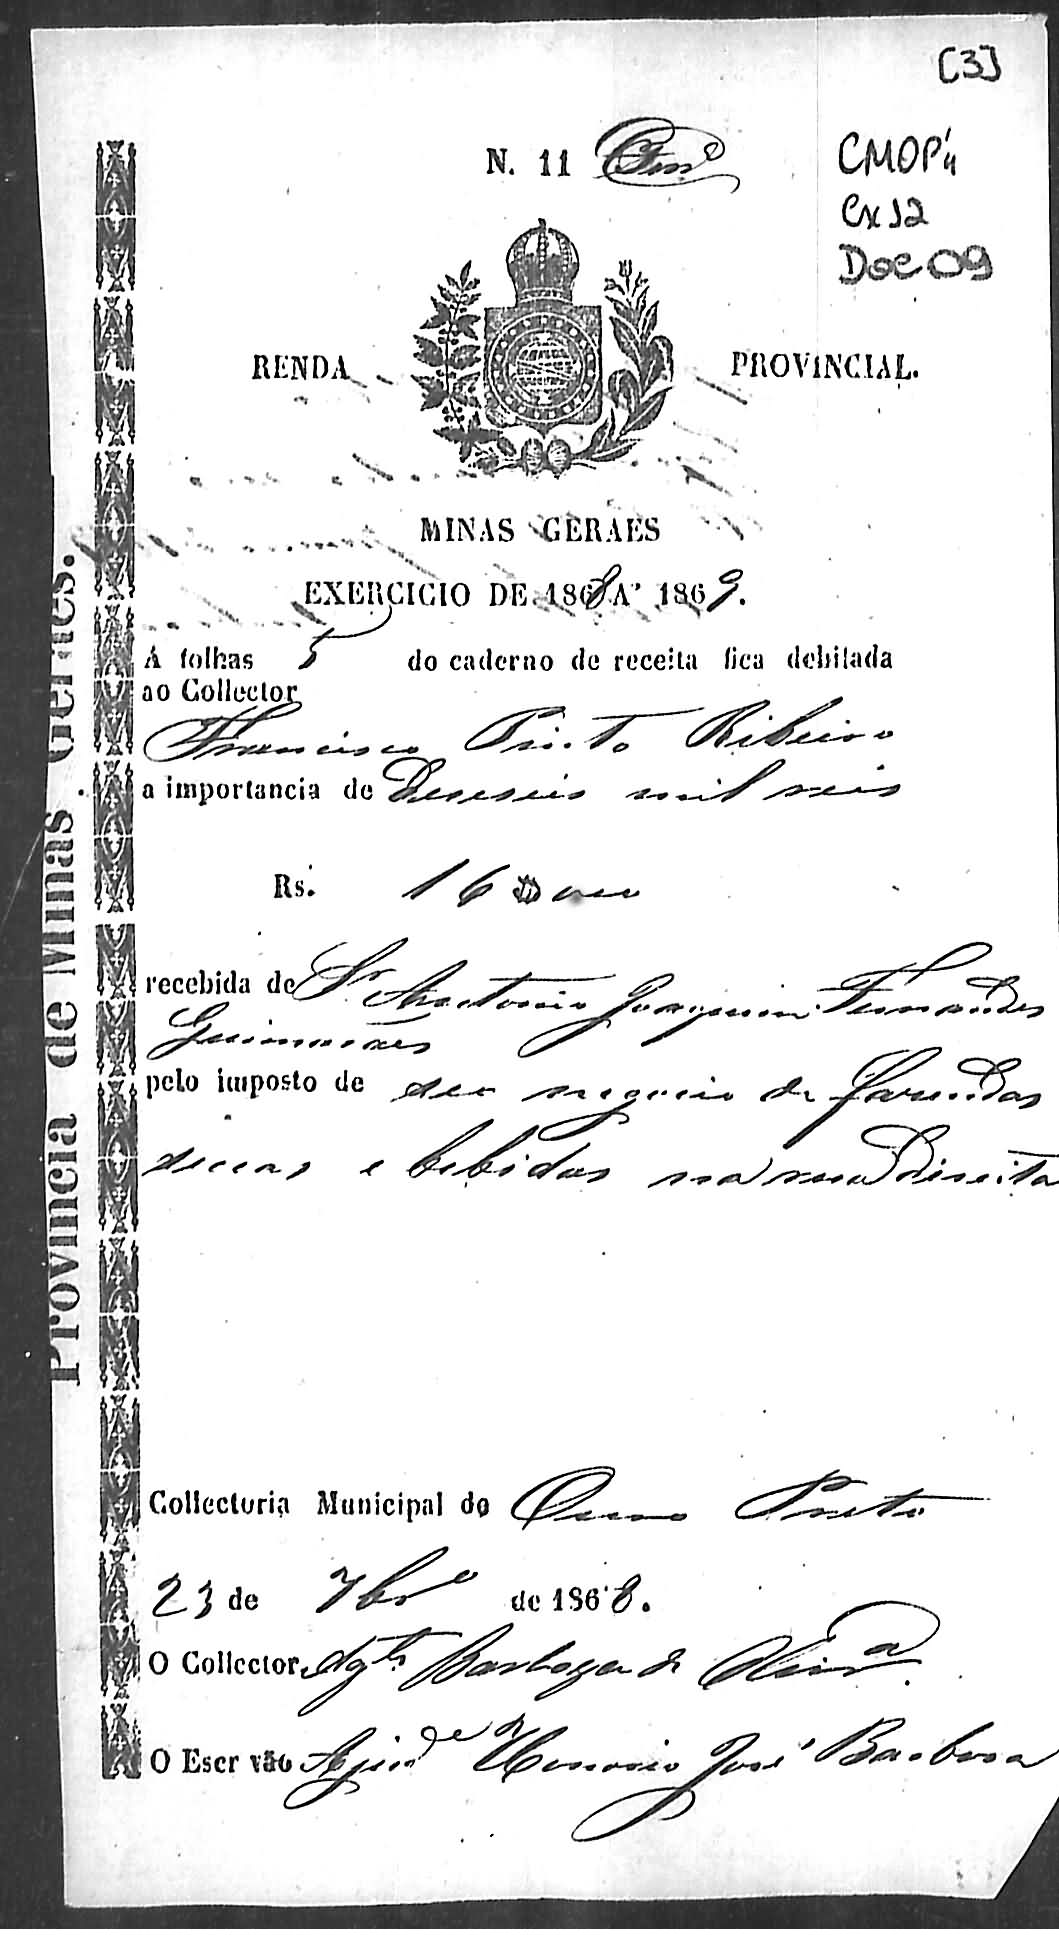 [3]
N. 11
CMOP
Cx 12
Doc 09
RENDA PROVINCIAL.
MINAS GERAES
EXERCICIO DE 1868 A' 1869.
Á folhas 5 do caderno de receita fica debitada
ao Collector
Francisco Pinto Ribeiro
a importancia de Deseseis mil reis
Rs. 16$000
recebida de Sr. Antonio Joaquim Fernandes
Guimarães
pelo imposto de seu negocio de fazendas
seccas e bebidas na rua Direita
Collectoria Municipal do Ouro Preto
23 de 7bro de 1868.
O Collector, Agte Barboza de Olivra.
O Escrivão Ajude Honorio José Barbosa
Provincia de Minas Geraes.